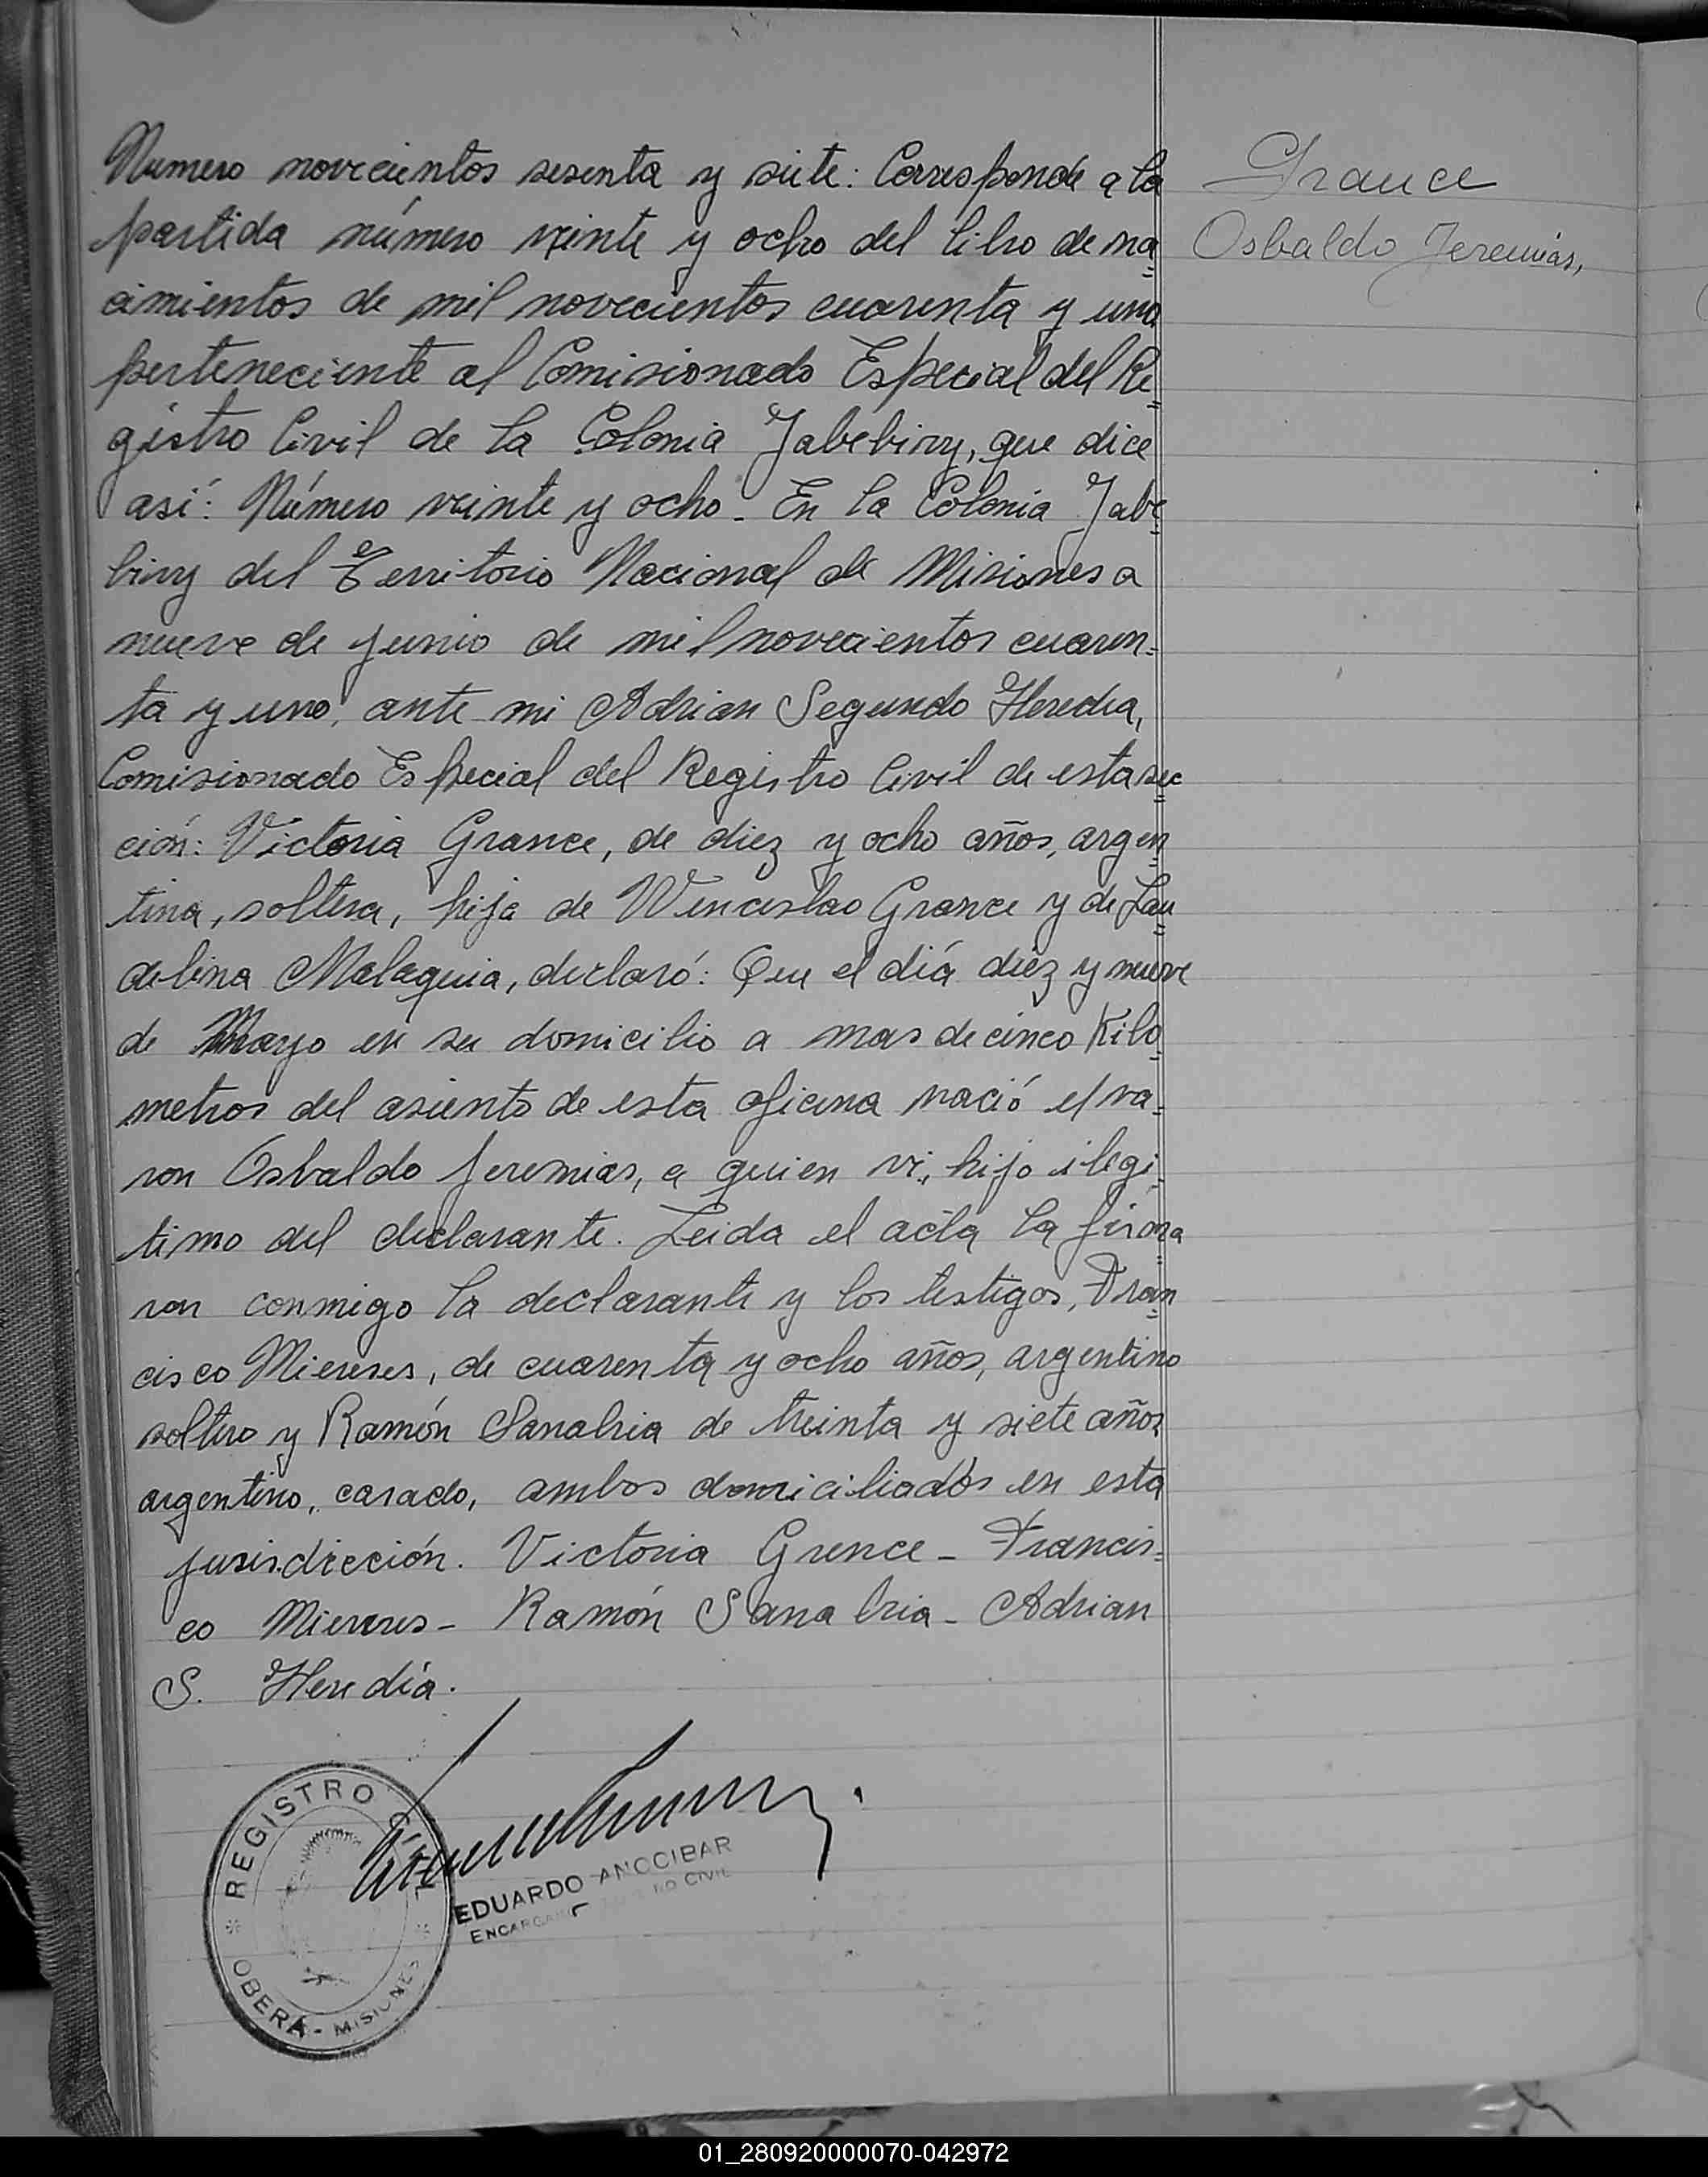 Numero novecientos sesenta y siete: Corresponde a la
partida número veinte y ocho del libro de na=
cimientos de mil novecientos cuarenta y uno
perteneciente al Comisionado Especial del Re=
gistro Civil de la Colonia Yabebiry, que dice
así: Número veinte y ocho - En la Colonia Yabe=
biry del Territorio Nacional de Misiones a
nueve de junio de mil novecientos cuaren=
ta y uno, ante mi Adrian Segundo Heredia,
Comisionado Especial del Registro Civil de esta sec=
ción: Victoria Grance, de diez y ocho años, argen=
tina, soltera, hija de Wenceslao Grance y de Lau=
delina Malaquia, declaró: Que el día diez y nueve
de Mayo en su domicilio a mas de cinco Kilo=
metros del asiento de esta oficina nació el va=
ron Osbaldo Jeremias, a quien vi, hijo ilegi=
timo del declarante. Leida el acta la firma
ron conmigo la declarante y los testigos, Fran=
cisco Miereres, de cuarenta y ocho años, argentino
soltero y Ramón Sanabria de treinta y siete años
argentino, casado, ambos domiciliados en esta
jurisdicción. Victoria Grence - Francis=
co Miereres - Ramón Sanabria - Adrian
S. Heredia.
Grance
Osbaldo Jeremias,
REGISTRO CIVIL
OBERÁ - MISIONES
EDUARDO ANOCIBAR
01_280920000070-042972